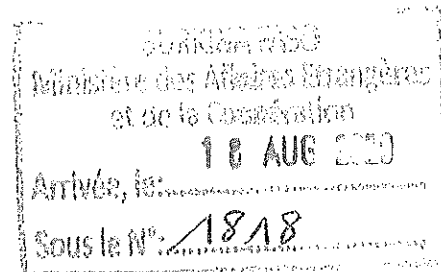 BURKINA FASO
Ministère des Affaires Etrangères
et de la Coopération
AUG 2020
Arrivée, le:
Sous le N°: 1818